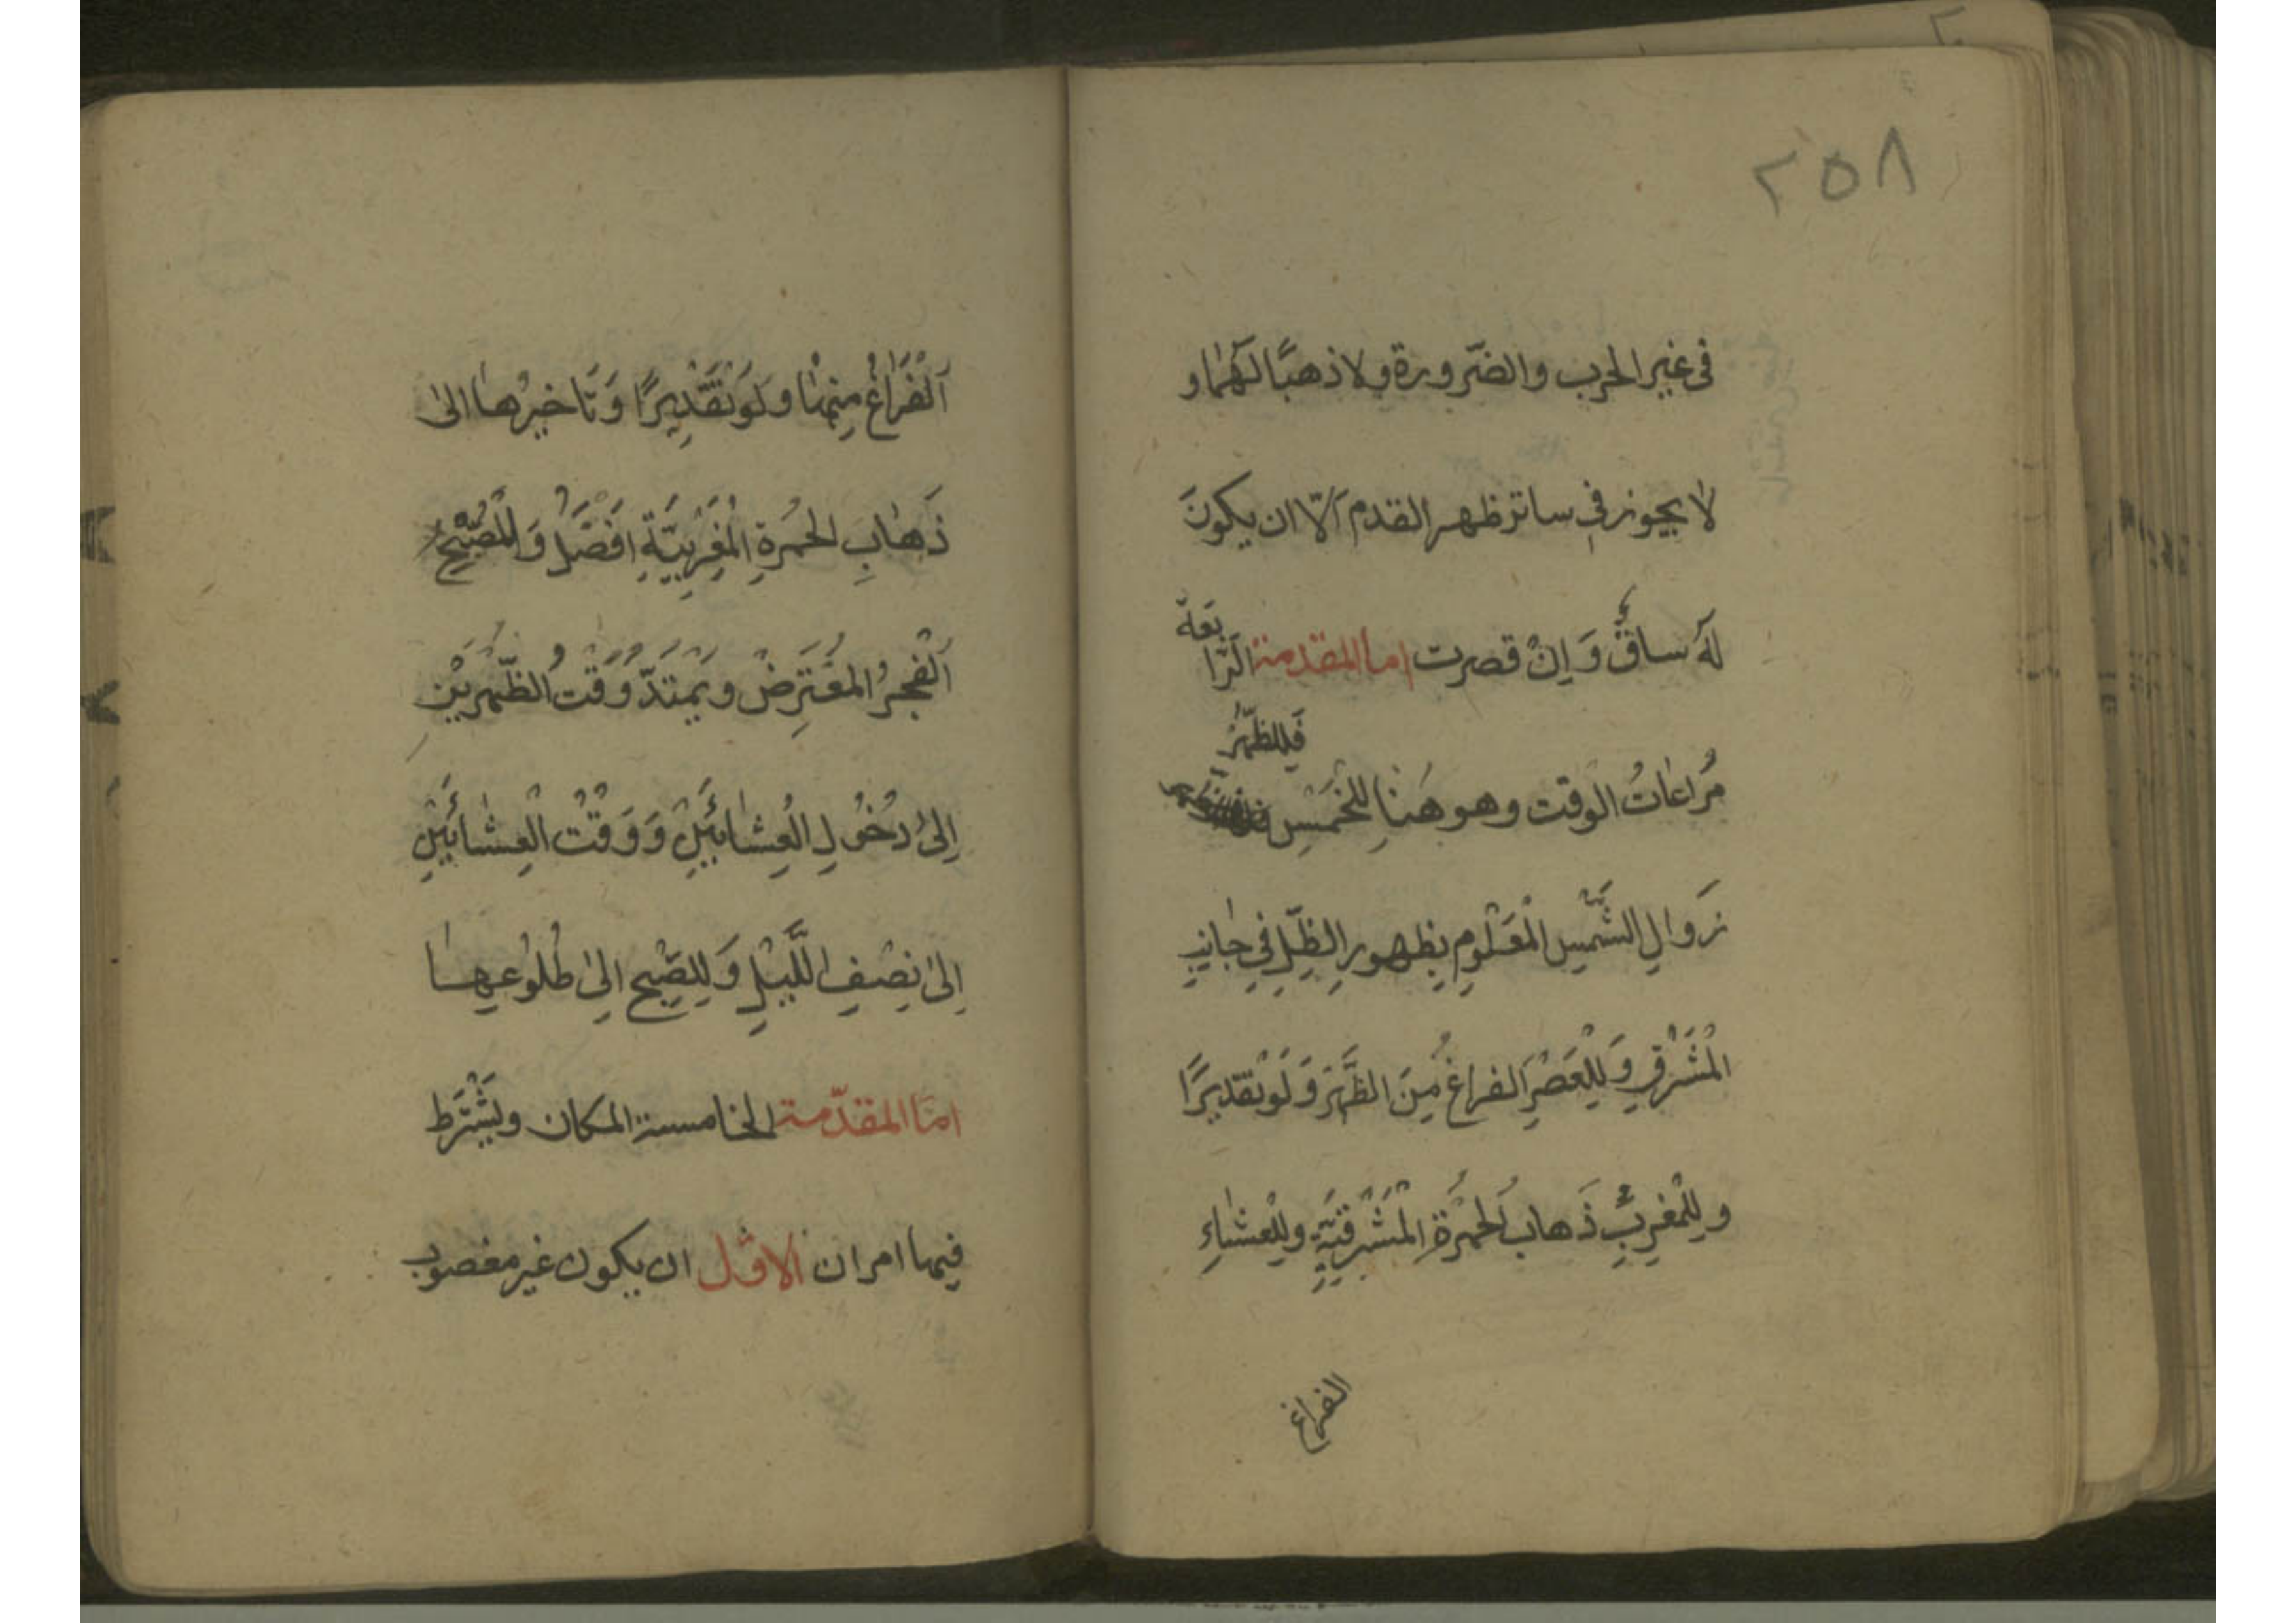 ٢٥٨
فى غير الحرب والضّرورة ولا ذهبًا لهما و
لا يجوز فى ساتر ظهر القدم الّا ان يكونَ
لهَ ساقٌ وَاِنْ قصرت اما المقدمة الرّا
بعة
مُراعاتُ الوقت وهو هنا للخَمْسِ
فللظّهْر
زَوالِ الشَّمْسِ الْمَعْلُومِ بِظهورِ الظِّلِّ فِي جانبِ
الْمَشْرِقِ وَلِلْعَصْرِ الفراغُ مِنَ الظُّهْرِ وَلَوْ تَقْديرًا
و لِلْمَغْرِبِ ذَهابُ الْحُمْرَةِ الْمَشْرِقيَّةِ ولِلْعشاءِ
الفراغ
اَلْفَرَاغُ مِنْها ولَوْ تَقْدِيرًا وَتَاخيرُها الىٰ
ذَهابِ الحُمْرَةِ الْمَغْرِبيَّةِ اَفْضَلُ وَ لِلصُّبْحِ
اَلْفجرُ المعْتَرِضُ ويَمْتَدُّ وَقْتُ الظّهْرَيْنِ
اِلىٰ دُخُولِ الْعِشائَيْنِ وَ وَقْتُ الْعِشائَيْنِ
اِلىٰ نِصْفِ اللَّيْلِ وَ لِلصّبْحِ اِلىٰ طُلُوعِها
امّا المقدّمة الخامسة المكان ويُشْتَرَط
فيها امران الاوّل ان يكون غير مغصوب